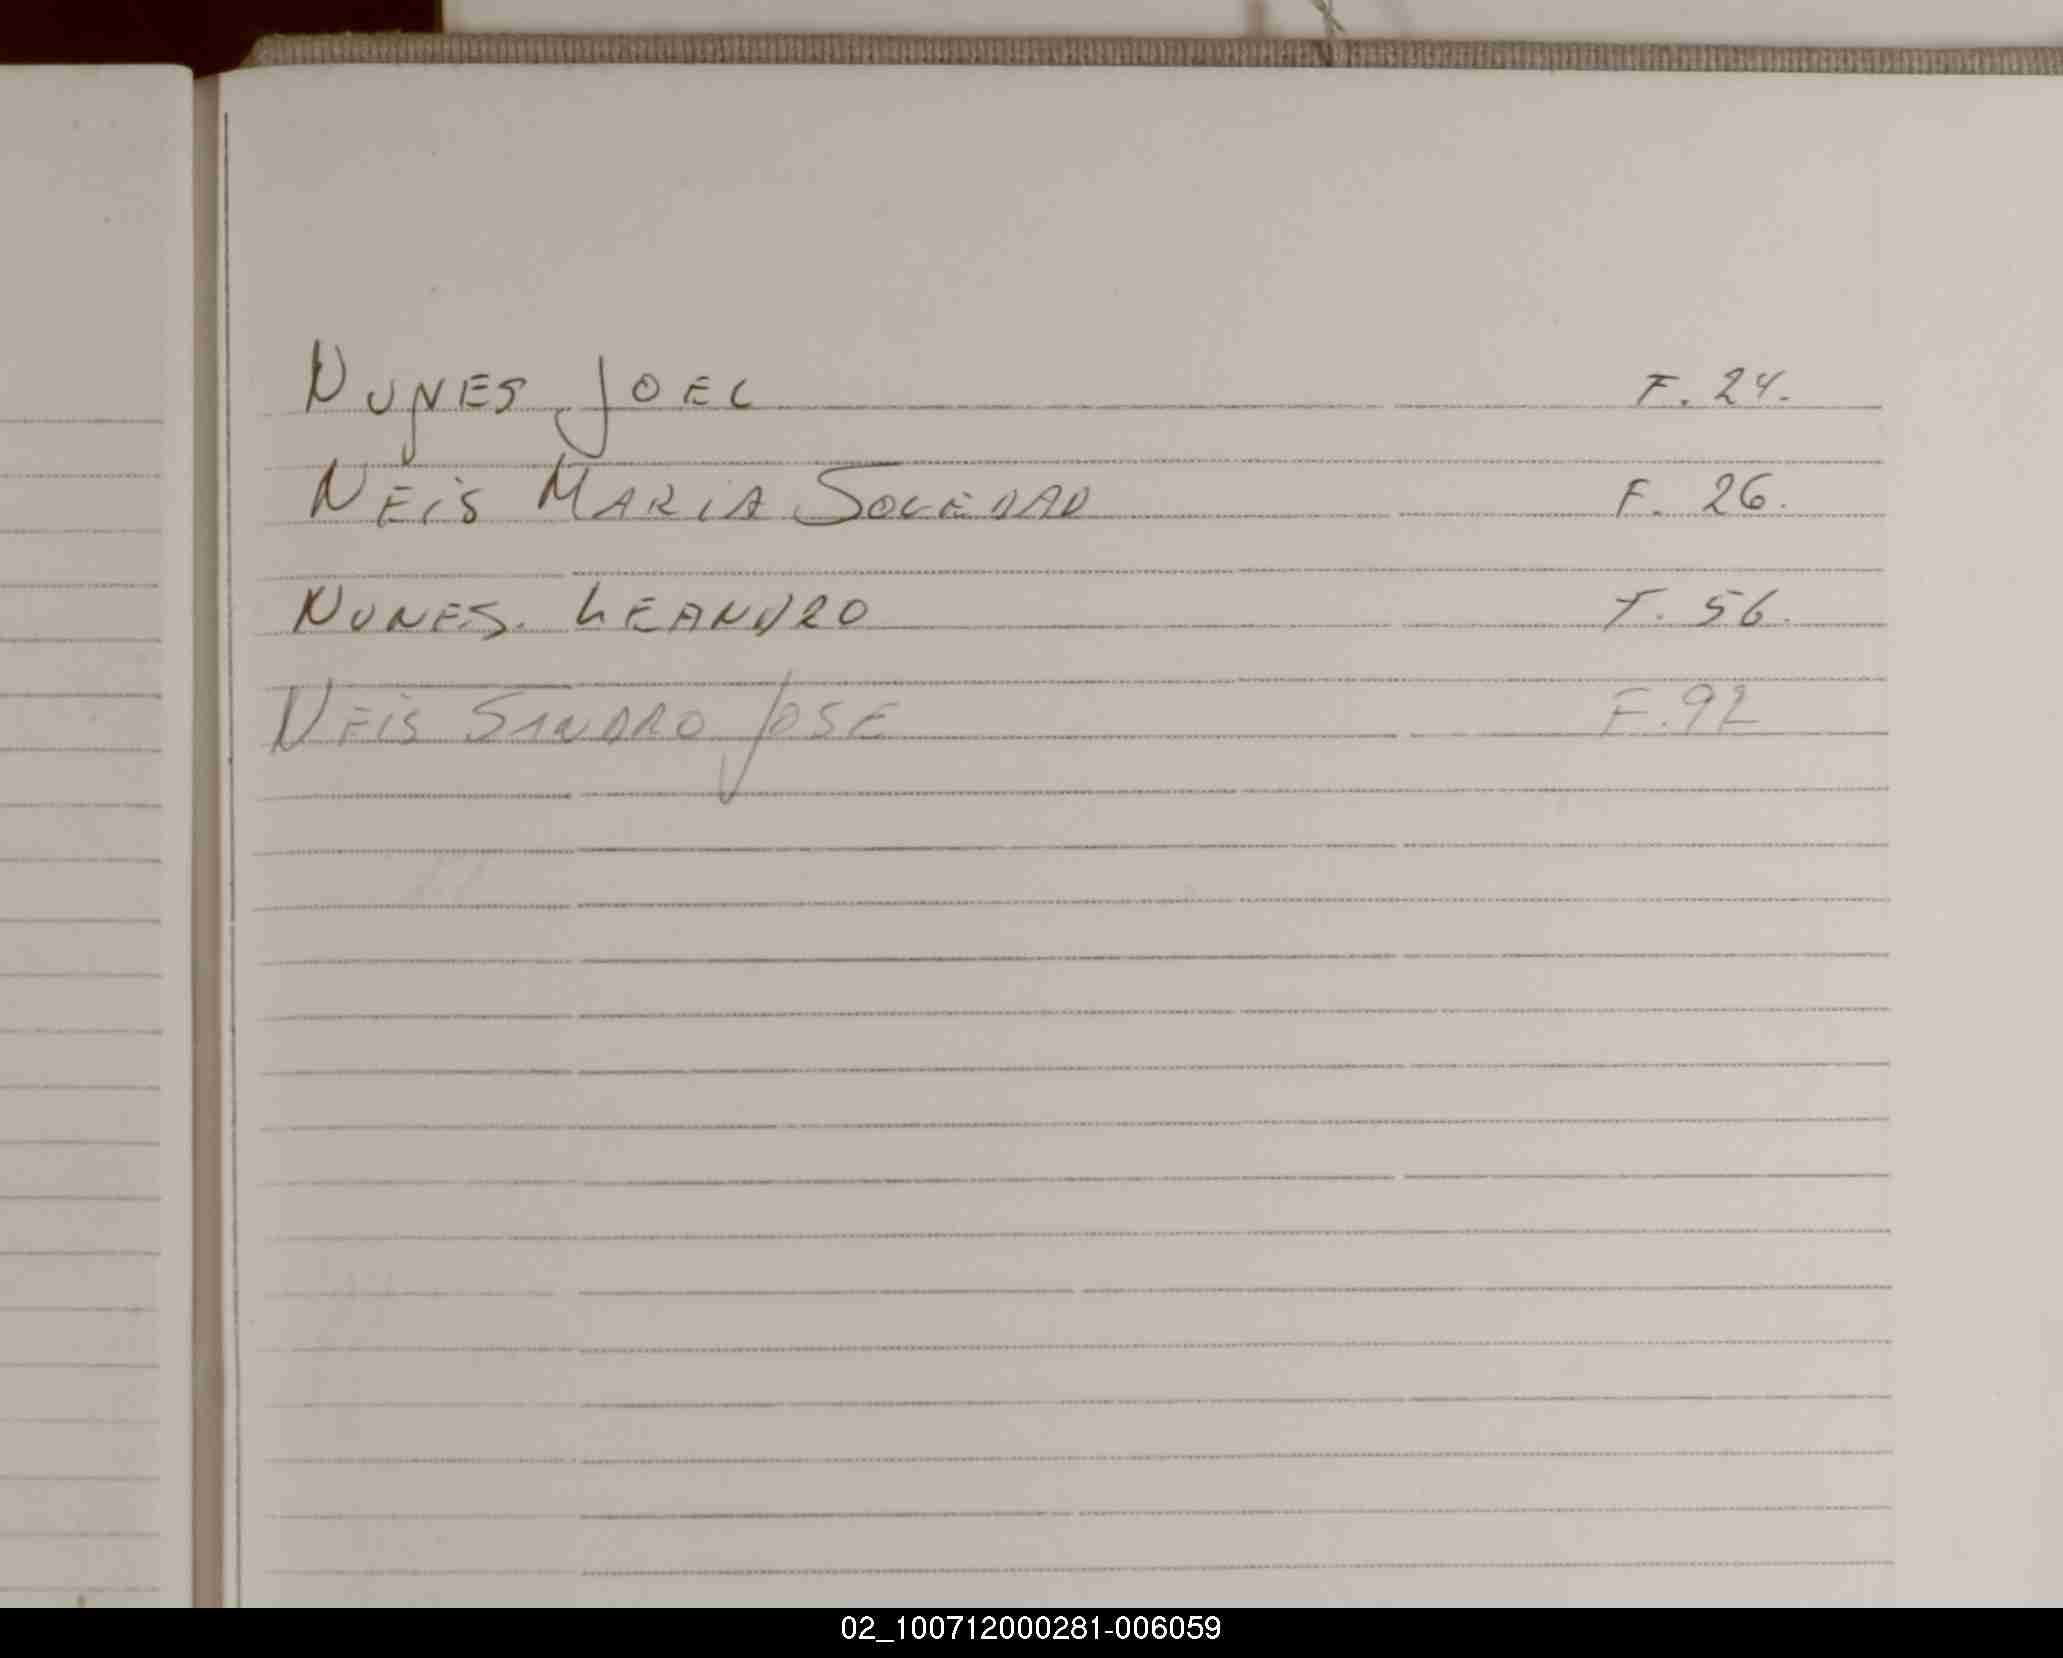 NUNES JOEL F. 24.
NEiS MARiA SOLEDAD F. 26.
NUNES. LEANDRO F. 56.
NEiS SANDRO JOSE F. 92
02_100712000281-006059